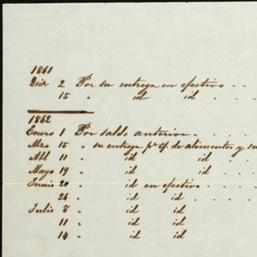 1861
Dix 2 Por su entrega en efectivo . . .
15 " id id . . .
1862
Enero 1 Por saldo anterior . . . .
Mzo 15 " su entrega pr cf de alimentos y su
Abl 11 " id id . .
Mayo 19 " id id . .
Junio 20 " id en efectivo . . . .
24 " id id . . .
Julio 8 " id id
11 " id id
14 " id id